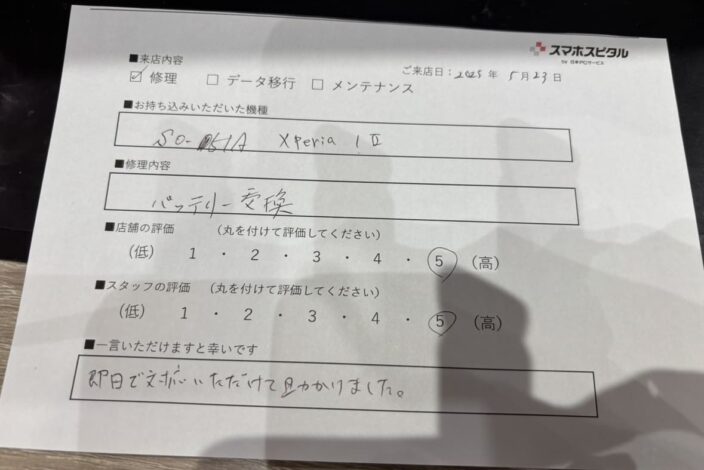 スマホスピタル
by 日本PCサービス
■来店内容
ご来店日：2025年 5月23日
☑ 修理 □ データ移行 □ メンテナンス
■お持ち込みいただいた機種
SO-51A Xperia 1 II
■修理内容
バッテリー交換
■店舗の評価 （丸を付けて評価してください）
（低） 1 ・ 2 ・ 3 ・ 4 ・ 5 （高）
■スタッフの評価 （丸を付けて評価してください）
（低） 1 ・ 2 ・ 3 ・ 4 ・ 5 （高）
■一言いただけますと幸いです
即日で対応いただけて助かりました。